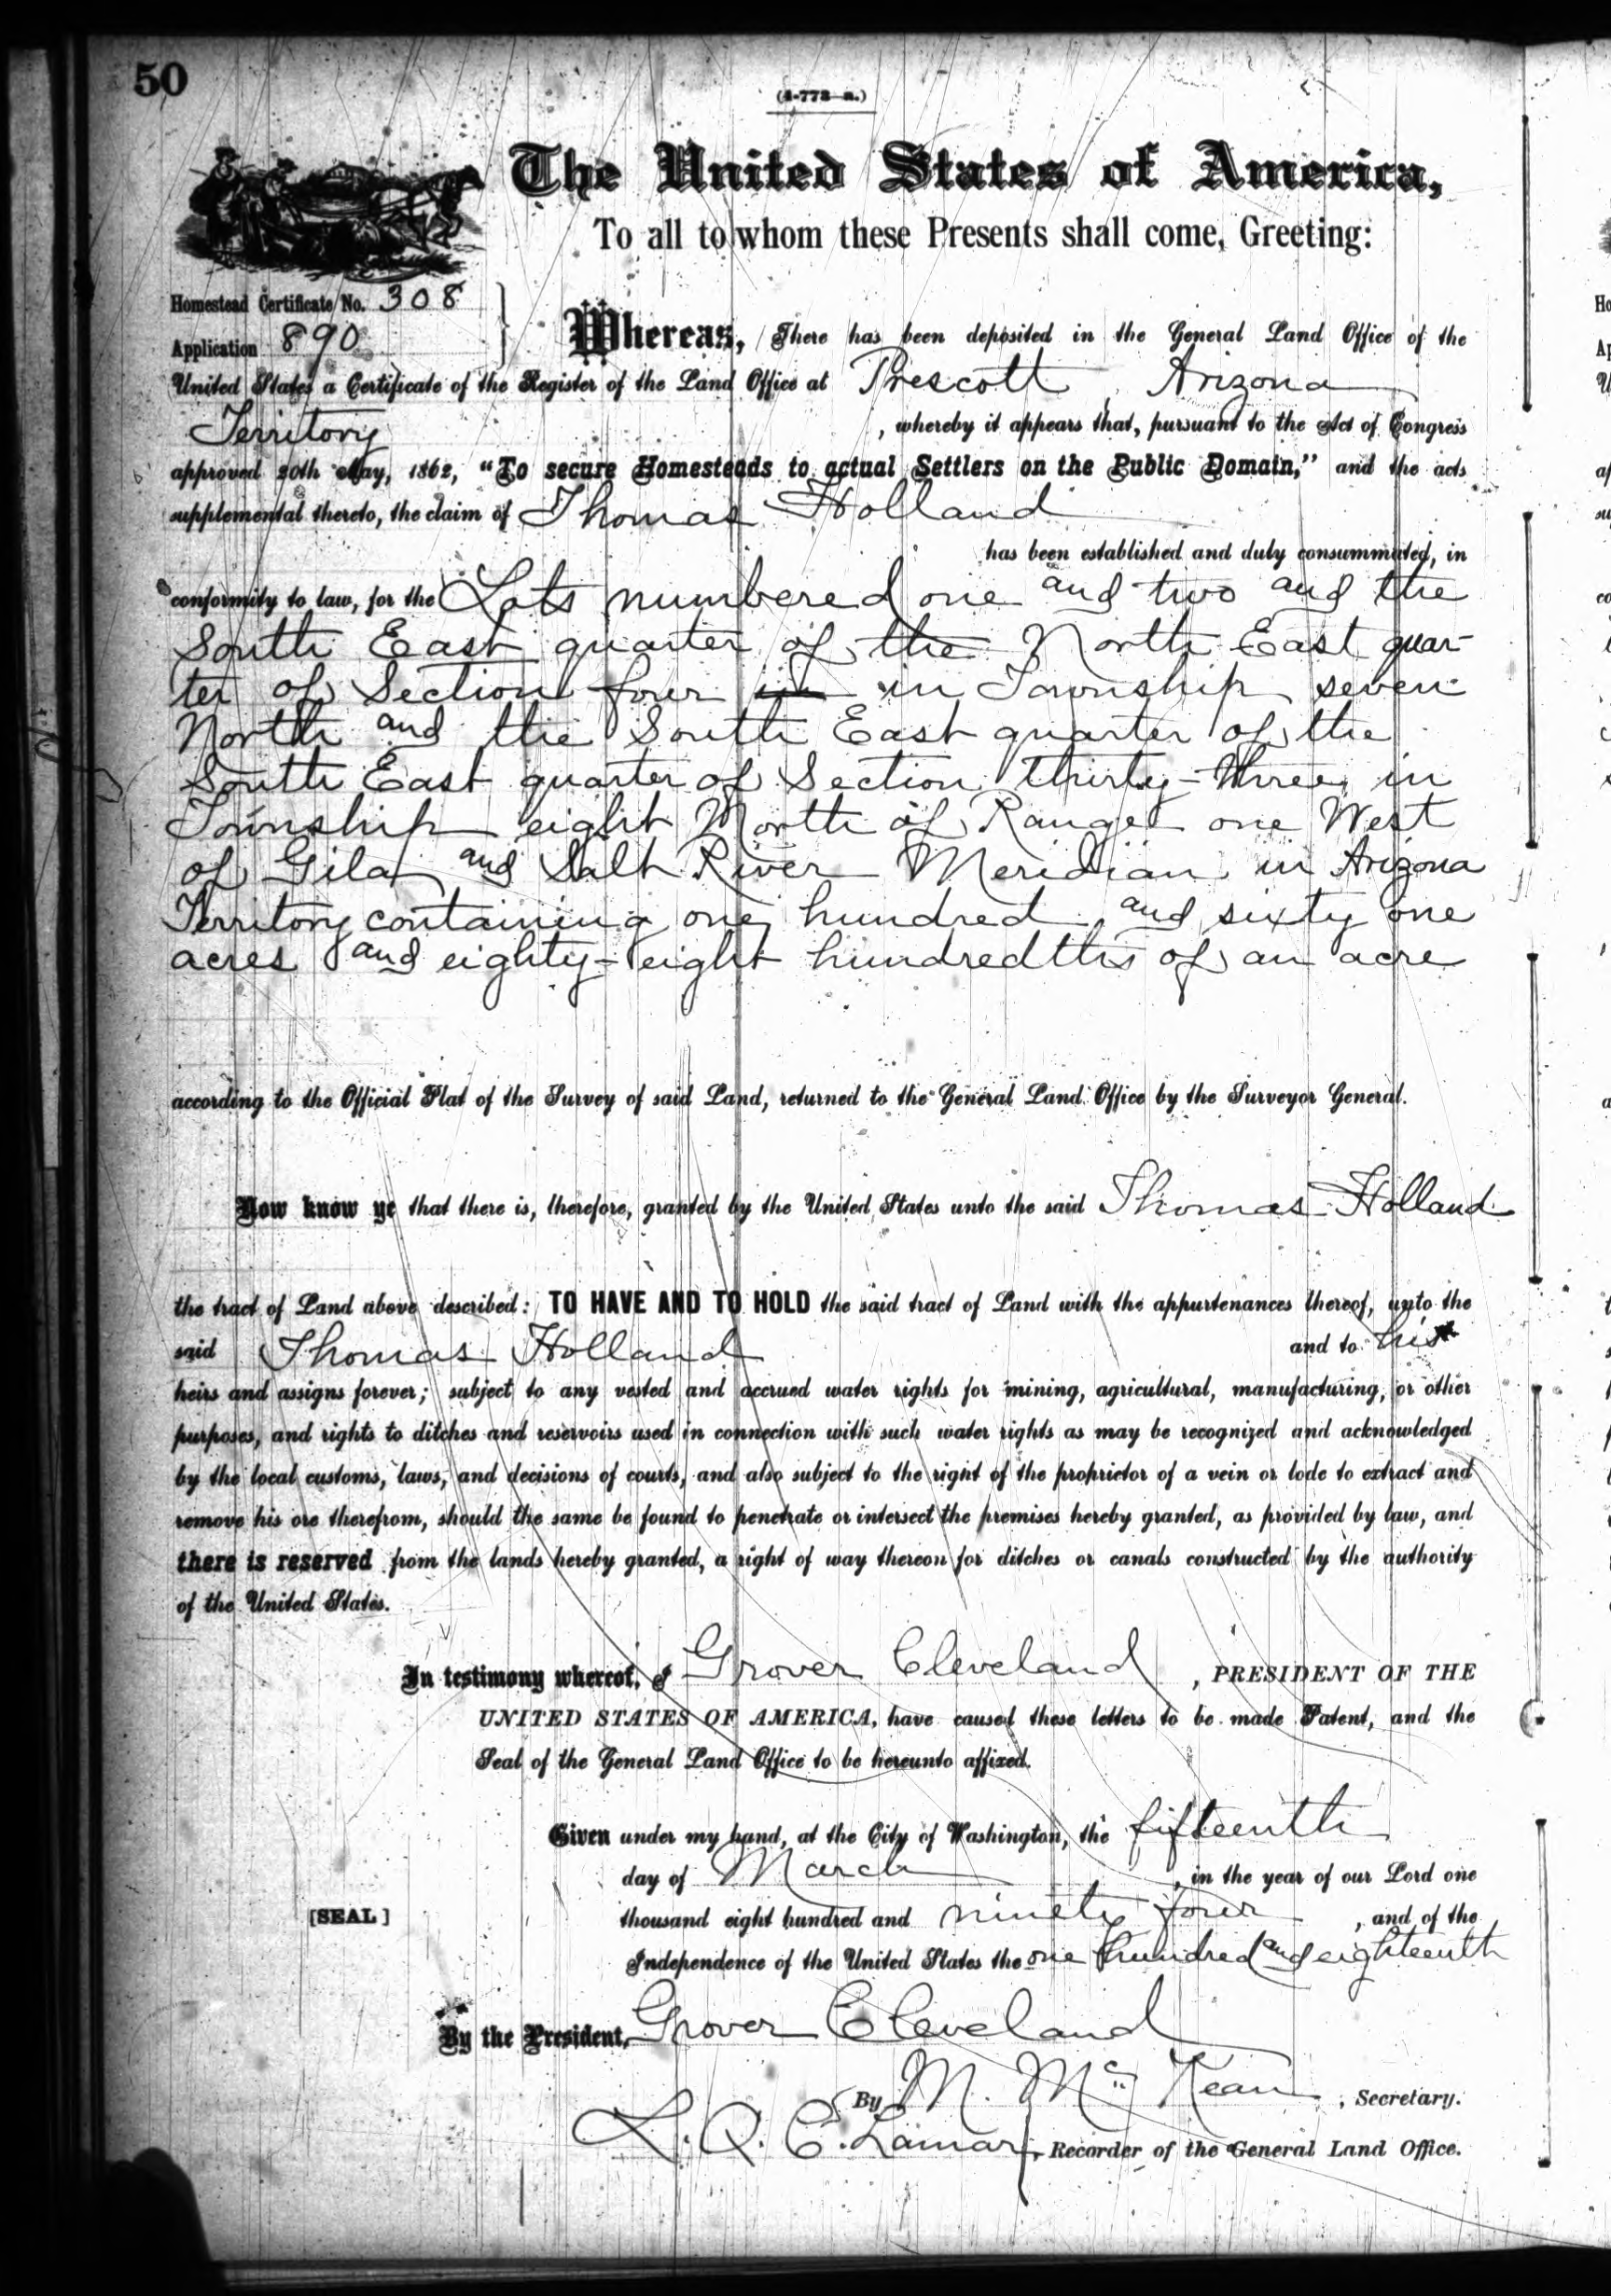 50
(4-773-a.)
The United States of America,
To all to whom these Presents shall come, Greeting:
Homestead Certificate No. 308
Application 890
Whereas, There has been deposited in the General Land Office of the
United States a Certificate of the Register of the Land Office at Prescott, Arizona
Territory, whereby it appears that, pursuant to the Act of Congress
approved 20th May, 1862, “To secure Homesteads to actual Settlers on the Public Domain,” and the acts
supplemental thereto, the claim of Thomas Holland
has been established and duly consummated, in
conformity to law, for the Lots numbered one and two and the
South East quarter of the North East quar-
ter of Section four in in Township seven
North and the South East quarter of the
South East quarter of Section thirty-three in
Township eight North of Range one West
of Gila and Salt River Meridian in Arizona
Territory containing one hundred and sixty one
acres and eighty-eight hundredths of an acre
according to the Official Plat of the Survey of said Land, returned to the General Land Office by the Surveyor General.
Now know ye that there is, therefore, granted by the United States unto the said Thomas Holland
the tract of Land above described: TO HAVE AND TO HOLD the said tract of Land with the appurtenances thereof, unto the
said Thomas Holland and to his
heirs and assigns forever; subject to any vested and accrued water rights for mining, agricultural, manufacturing, or other
purposes, and rights to ditches and reservoirs used in connection with such water rights as may be recognized and acknowledged
by the local customs, laws, and decisions of courts, and also subject to the right of the proprietor of a vein or lode to extract and
remove his ore therefrom, should the same be found to penetrate or intersect the premises hereby granted, as provided by law, and
there is reserved from the lands hereby granted, a right of way thereon for ditches or canals constructed by the authority
of the United States.
In testimony whereof, I Grover Cleveland, PRESIDENT OF THE
UNITED STATES OF AMERICA, have caused these letters to be made Patent, and the
Seal of the General Land Office to be hereunto affixed.
Given under my hand, at the City of Washington, the fifteenth
day of March, in the year of our Lord one
[SEAL] thousand eight hundred and ninety four, and of the
Independence of the United States the one hundred and eighteenth
By the President, Grover Cleveland
By M. McKean, Secretary.
L. Q. C. Lamar, Recorder of the General Land Office.